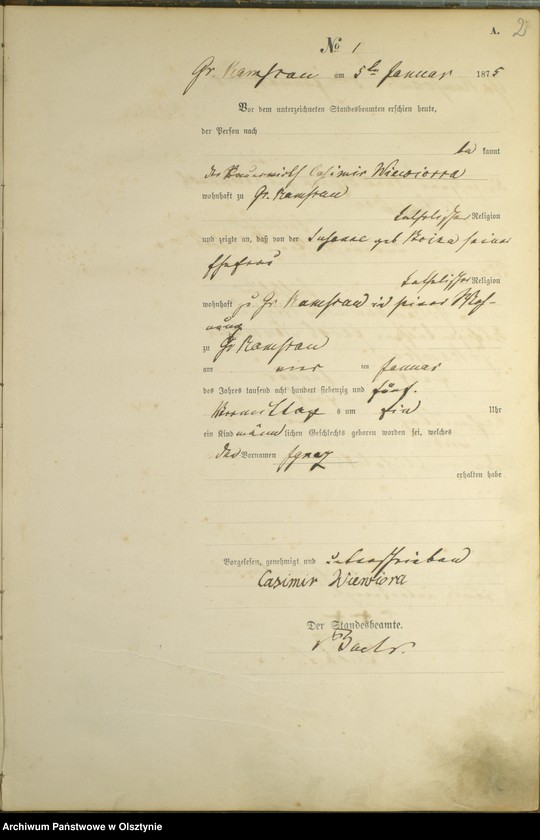 A. 2
No 1
Gr. Ramsau am 5ten Januar 1875
Vor dem unterzeichneten Standesbeamten erschien heute,
der Person nach
be kannt
der Casimir Wiewiorra
wohnhaft zu Gr. Ramsau
katholischer Religion
und zeigte an, daß von der Susanne geb seiner
Ehefrau
katholischer Religion
wohnhaft zu Gr. Ramsau in seiner Woh-
nung
zu Gr Ramsau
am vier ten Januar
des Jahres tausend acht hundert siebenzig und fünf.
Vormittags um ein Uhr
ein Kind männlichen Geschlechts geboren worden sei, welches
den Vornamen Ignaz
erhalten habe
Vorgelesen, genehmigt und unterschrieben
Casimir Wiewiora
Der Standesbeamte.
Archiwum Państwowe w Olsztynie